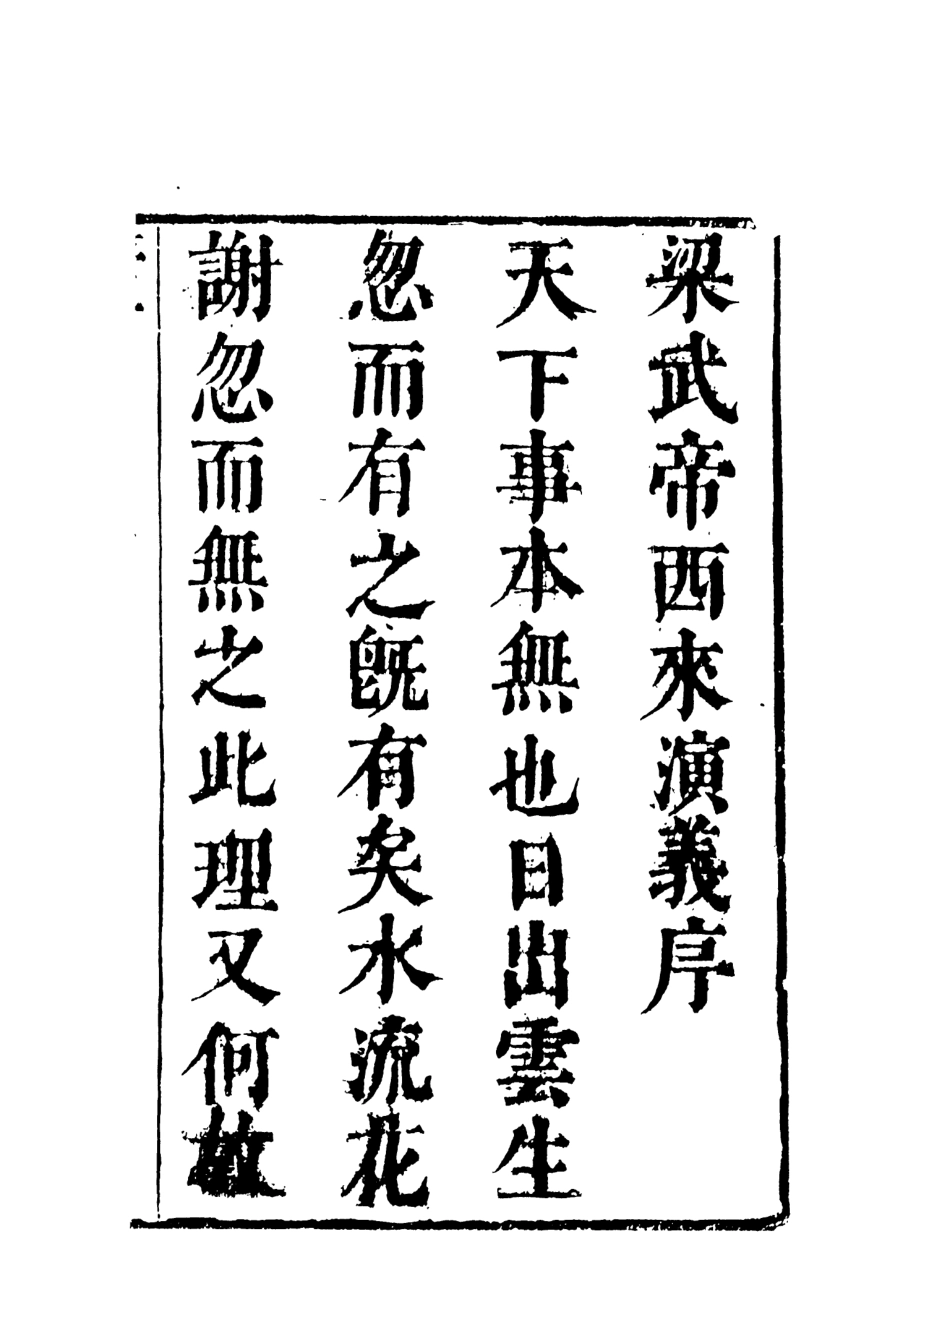 梁武帝西來演義序
天下事本無也日出雲生
忽而有之旣有矣水流花
謝忽而無之此理又何故